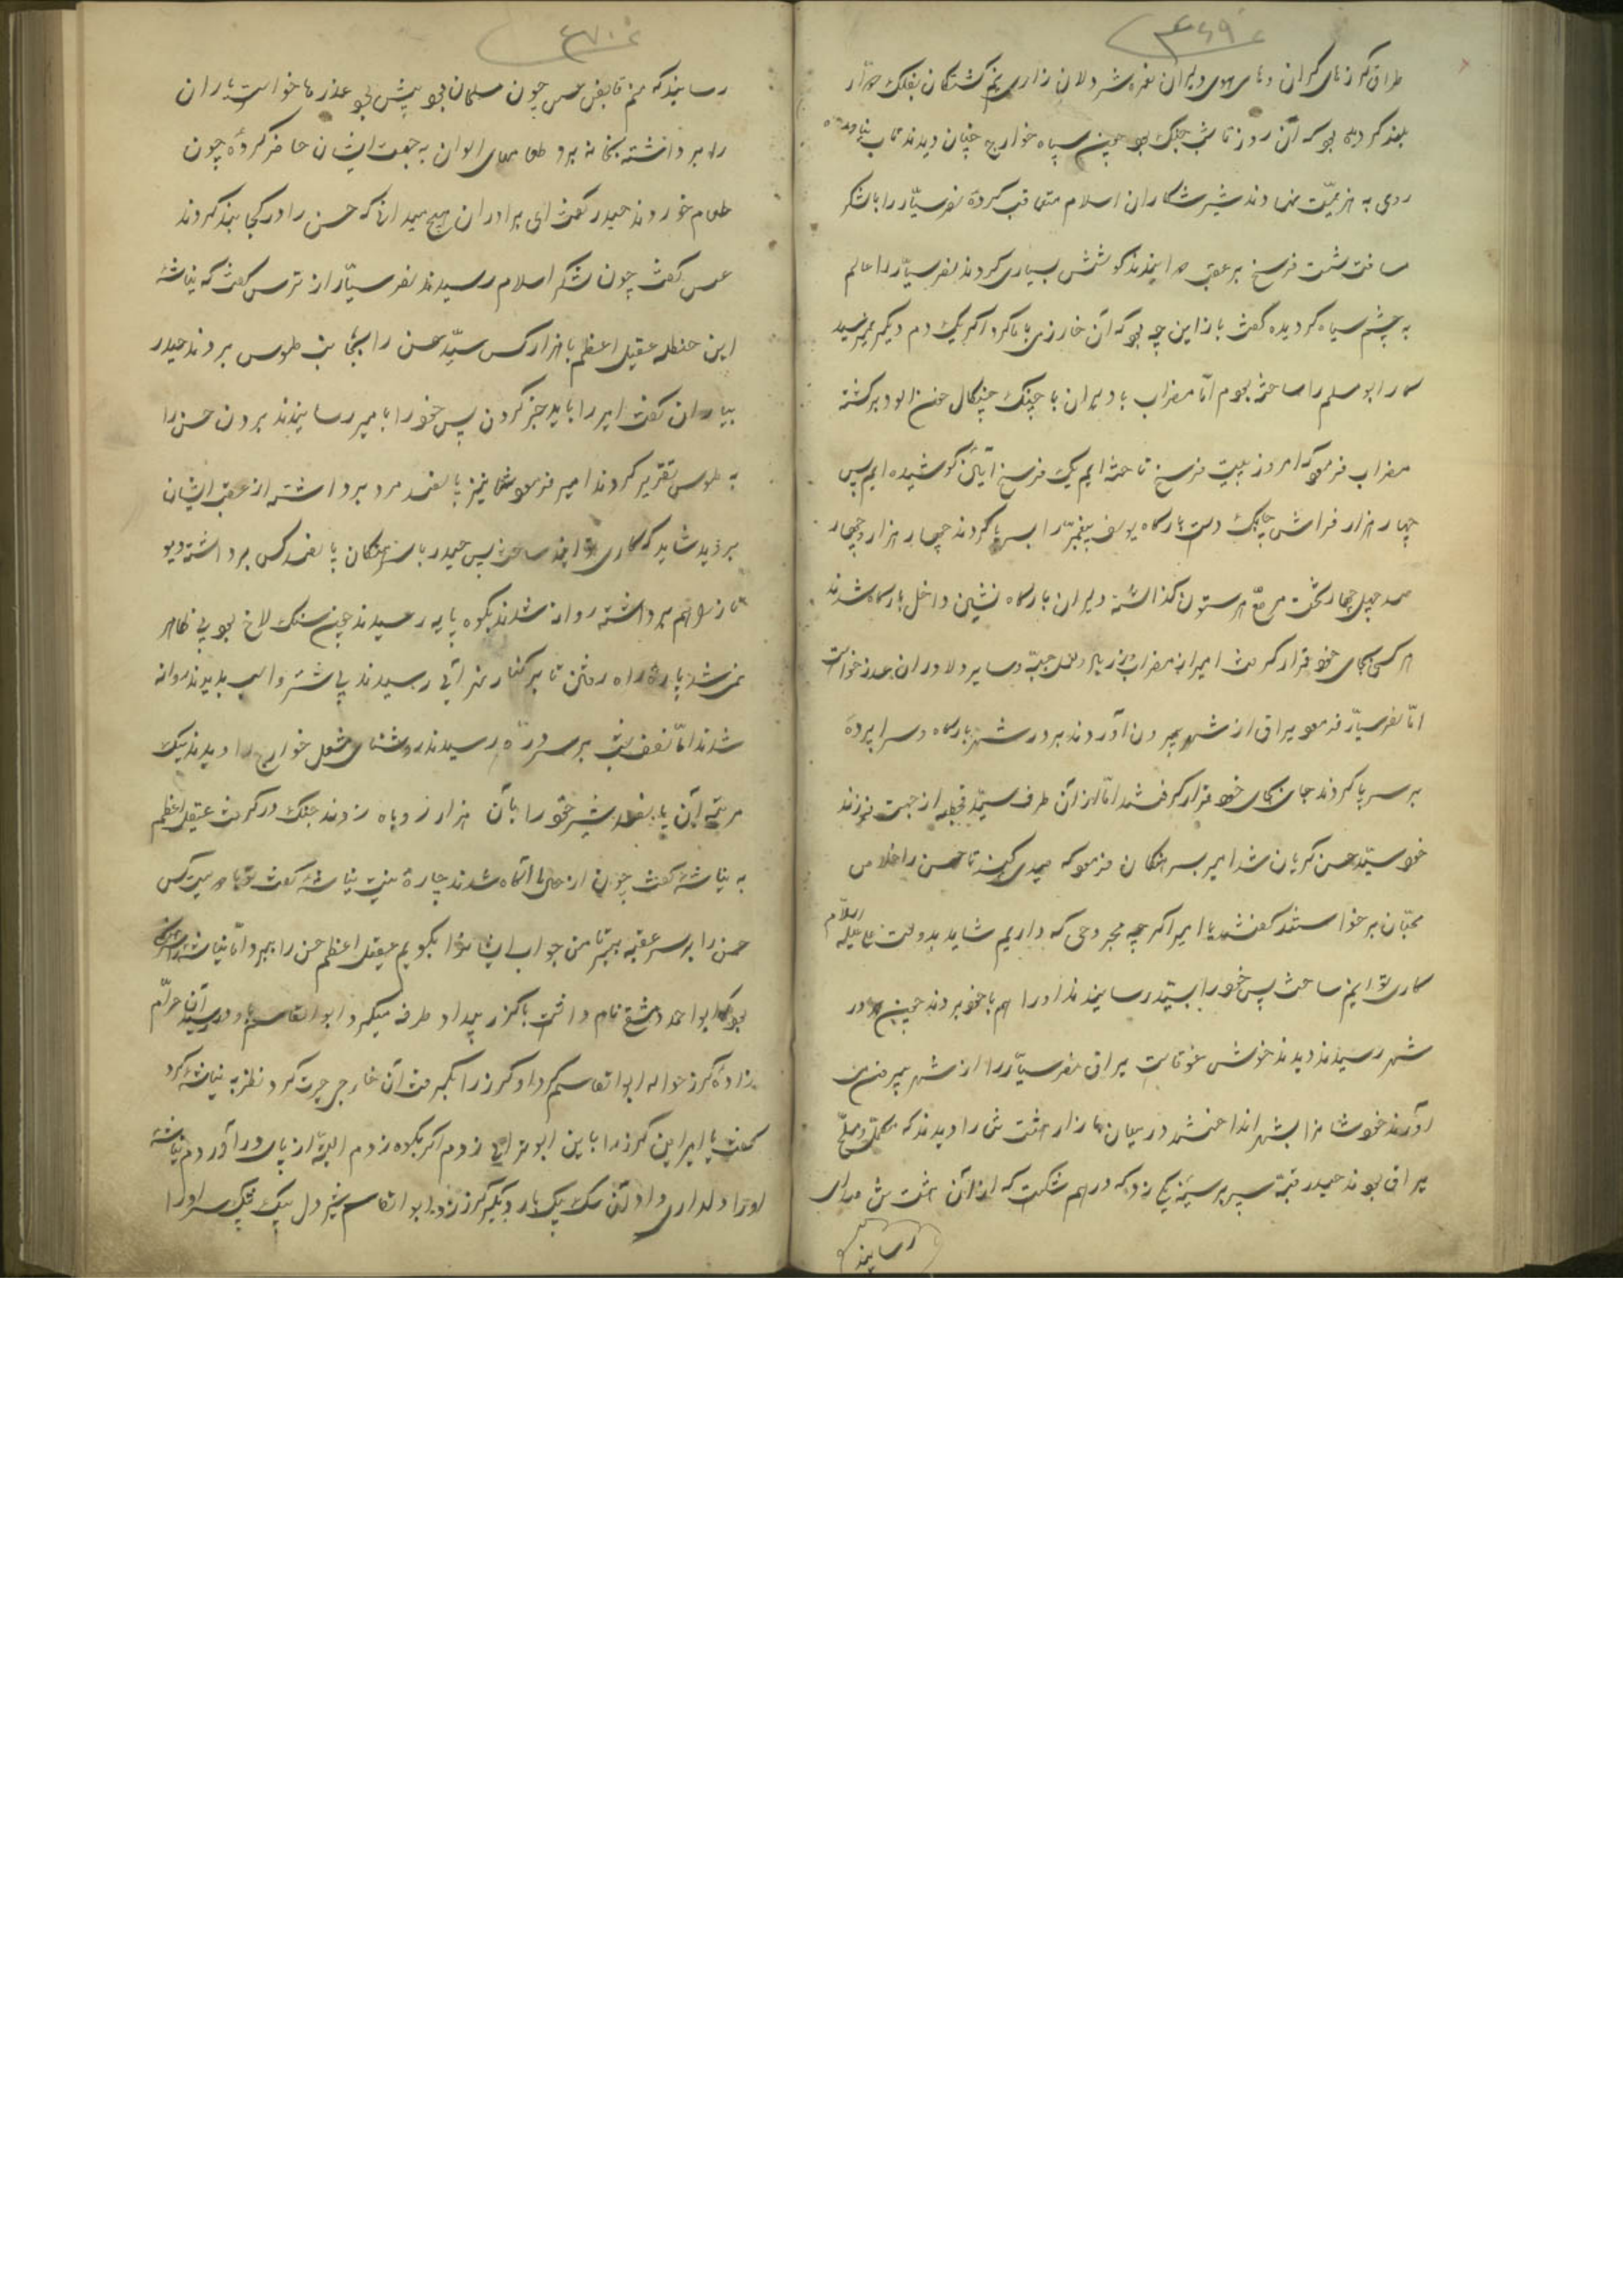 ۴۶۹
طراق گرزهای گران و های هوی دلیران نعره شیر دلان زاری نیم کشتگان بفلک دوار
بلند کرده بود که آن روز تا شب جنگ بود چون سپاه خوارج چنان دیدند تاب نیاورده
روی به هزیمت نهادند شیر شکاران اسلام متعاقب کرده نصر سیّار را با لشکر
مسافت شصت فرسخ بر عقب دوانیدند کوشش بسیاری کردند نصر سیّار را عالم
به چشم سیاه گردیده گفت باز این چه بود که آن خارزی با ما کرد اگر یک دم دیگر نمیرسید
کار ابو مسلم را ساخته بودم امّا مضراب با دلیران با چنگ چنگال خون آلود برگشته
مضراب فرمود که امروز بیست فرسخ تاخته ایم یک فرسخ کوشیده ایم پس
چهار هزار فراش چابک دست بارگاه یوسف پیغمبر را بسر پا کردند چهار هزار و چهار
صد چهل چهار تخت مرصّع هر ستون گذاشته دلیران بارگاه نشین داخل بارگاه شدند
هر کسی بجای خود قرار گرفت امیر از مضراب و سایر دلاوران عذر خواست
امّا نصر سیّار فرمود یراق از شهر بیرون آوردند بر در شهر بارگاه و سراپرده
بر سر پا کردند بجای خود قرار گرفتند امّا از آن طرف سیّد قحطبه از جهت فرزند
خود سیّد حسن گریان شد امیر بسرهنگان فرمود که جهدی کنید تا حسن را خلاص
محبّان برخواستند گفتند یا امیر اگر چه مجروحی که داریم شاید بدولت علیه السلام
کاری توانیم ساخت پس خود را بسیّد رسانیدند او را هم با خود بردند چون در
شهر رسیدند دیدند خوش غوغاست یراق نصر سیّار را از شهر بیرون می
آورند خود شانرا بشهر انداختند در میان بازار هشت کس را دیدند که مکمّل و مسلّح
یراق بودند حیدر قبّهٔ سپر بر سینهٔ یکی زد که درهم شکست که از آن هشت کس صدای
رسانید
۴۷۰
رسانید که منم قابض عسس چون مسلمان بود پیش بود عذرها خواست یاران
را برداشته بخانه برد طعامهای الوان به جهت ایشان حاضر کرده چون
طعام خوردند حیدر گفت ای برادران هیچ میدانی که حسن را در کجا بند کردند
عسس گفت چون لشکر اسلام رسیدند نصر سیّار از ترس گفت که نیاشهٔ
ابن حنظله عقیل اعظم با هزار کس سیّد حسن را بجانب طوس بردند حیدر
بیاران گفت امیر را باید خبر کردن پس خود را بامیر رسانیدند بردن حسن را
به طوس تقریر کردند امیر فرمود شما نیز پانصد مرد برداشته از عقب ایشان
بروید شاید که کاری توانید ساخت پس حیدر با سرهنگان پانصد کس برداشته و
هم برداشته روان شدند بکوه پایه رسیدند چون سنگ لاخ بود پی ظاهر
نمی شد پاره راه رفتن تا بر کنار نهر آبی رسیدند پی شتر و اسب بدیدند روانه
شدند امّا نصف شب بر سر درّه رسیدند روشنای مشعل خوارج را دیدند یک
مرتبه آن پانصد شیر خود را بآن هزار روباه زدند جنگ در گرفت عقیل اعظم
به نیاشهٔ گفت چون از حال ما آگاه شدند چاره چیست نیاشهٔ گفت تو با دویست کس
حسن را بر سر عقبه ببر تا من جواب ایشانرا بگویم عقیل اعظم حسن را ببرد امّا نیاشهٔ
بود که ابو احمد دمشقی نام داشت با گرز بیداد طرف میگرد و ابو القاسم باو رسید آن حرام
زاده گرز حواله ابو القاسم کرد او گرز را بگرفت آن خارجی حیرت کرد نظر به نیاشهٔ کرد
گفت یا امیر این گرز را باین ابو ترابی زدم اگر بکوه زدم البتّه از پای در آوردم نیاشهٔ
او را دلداری داد آن سگ یک بار دیگر گرز زد ابو القاسم شیر دل سپر او را